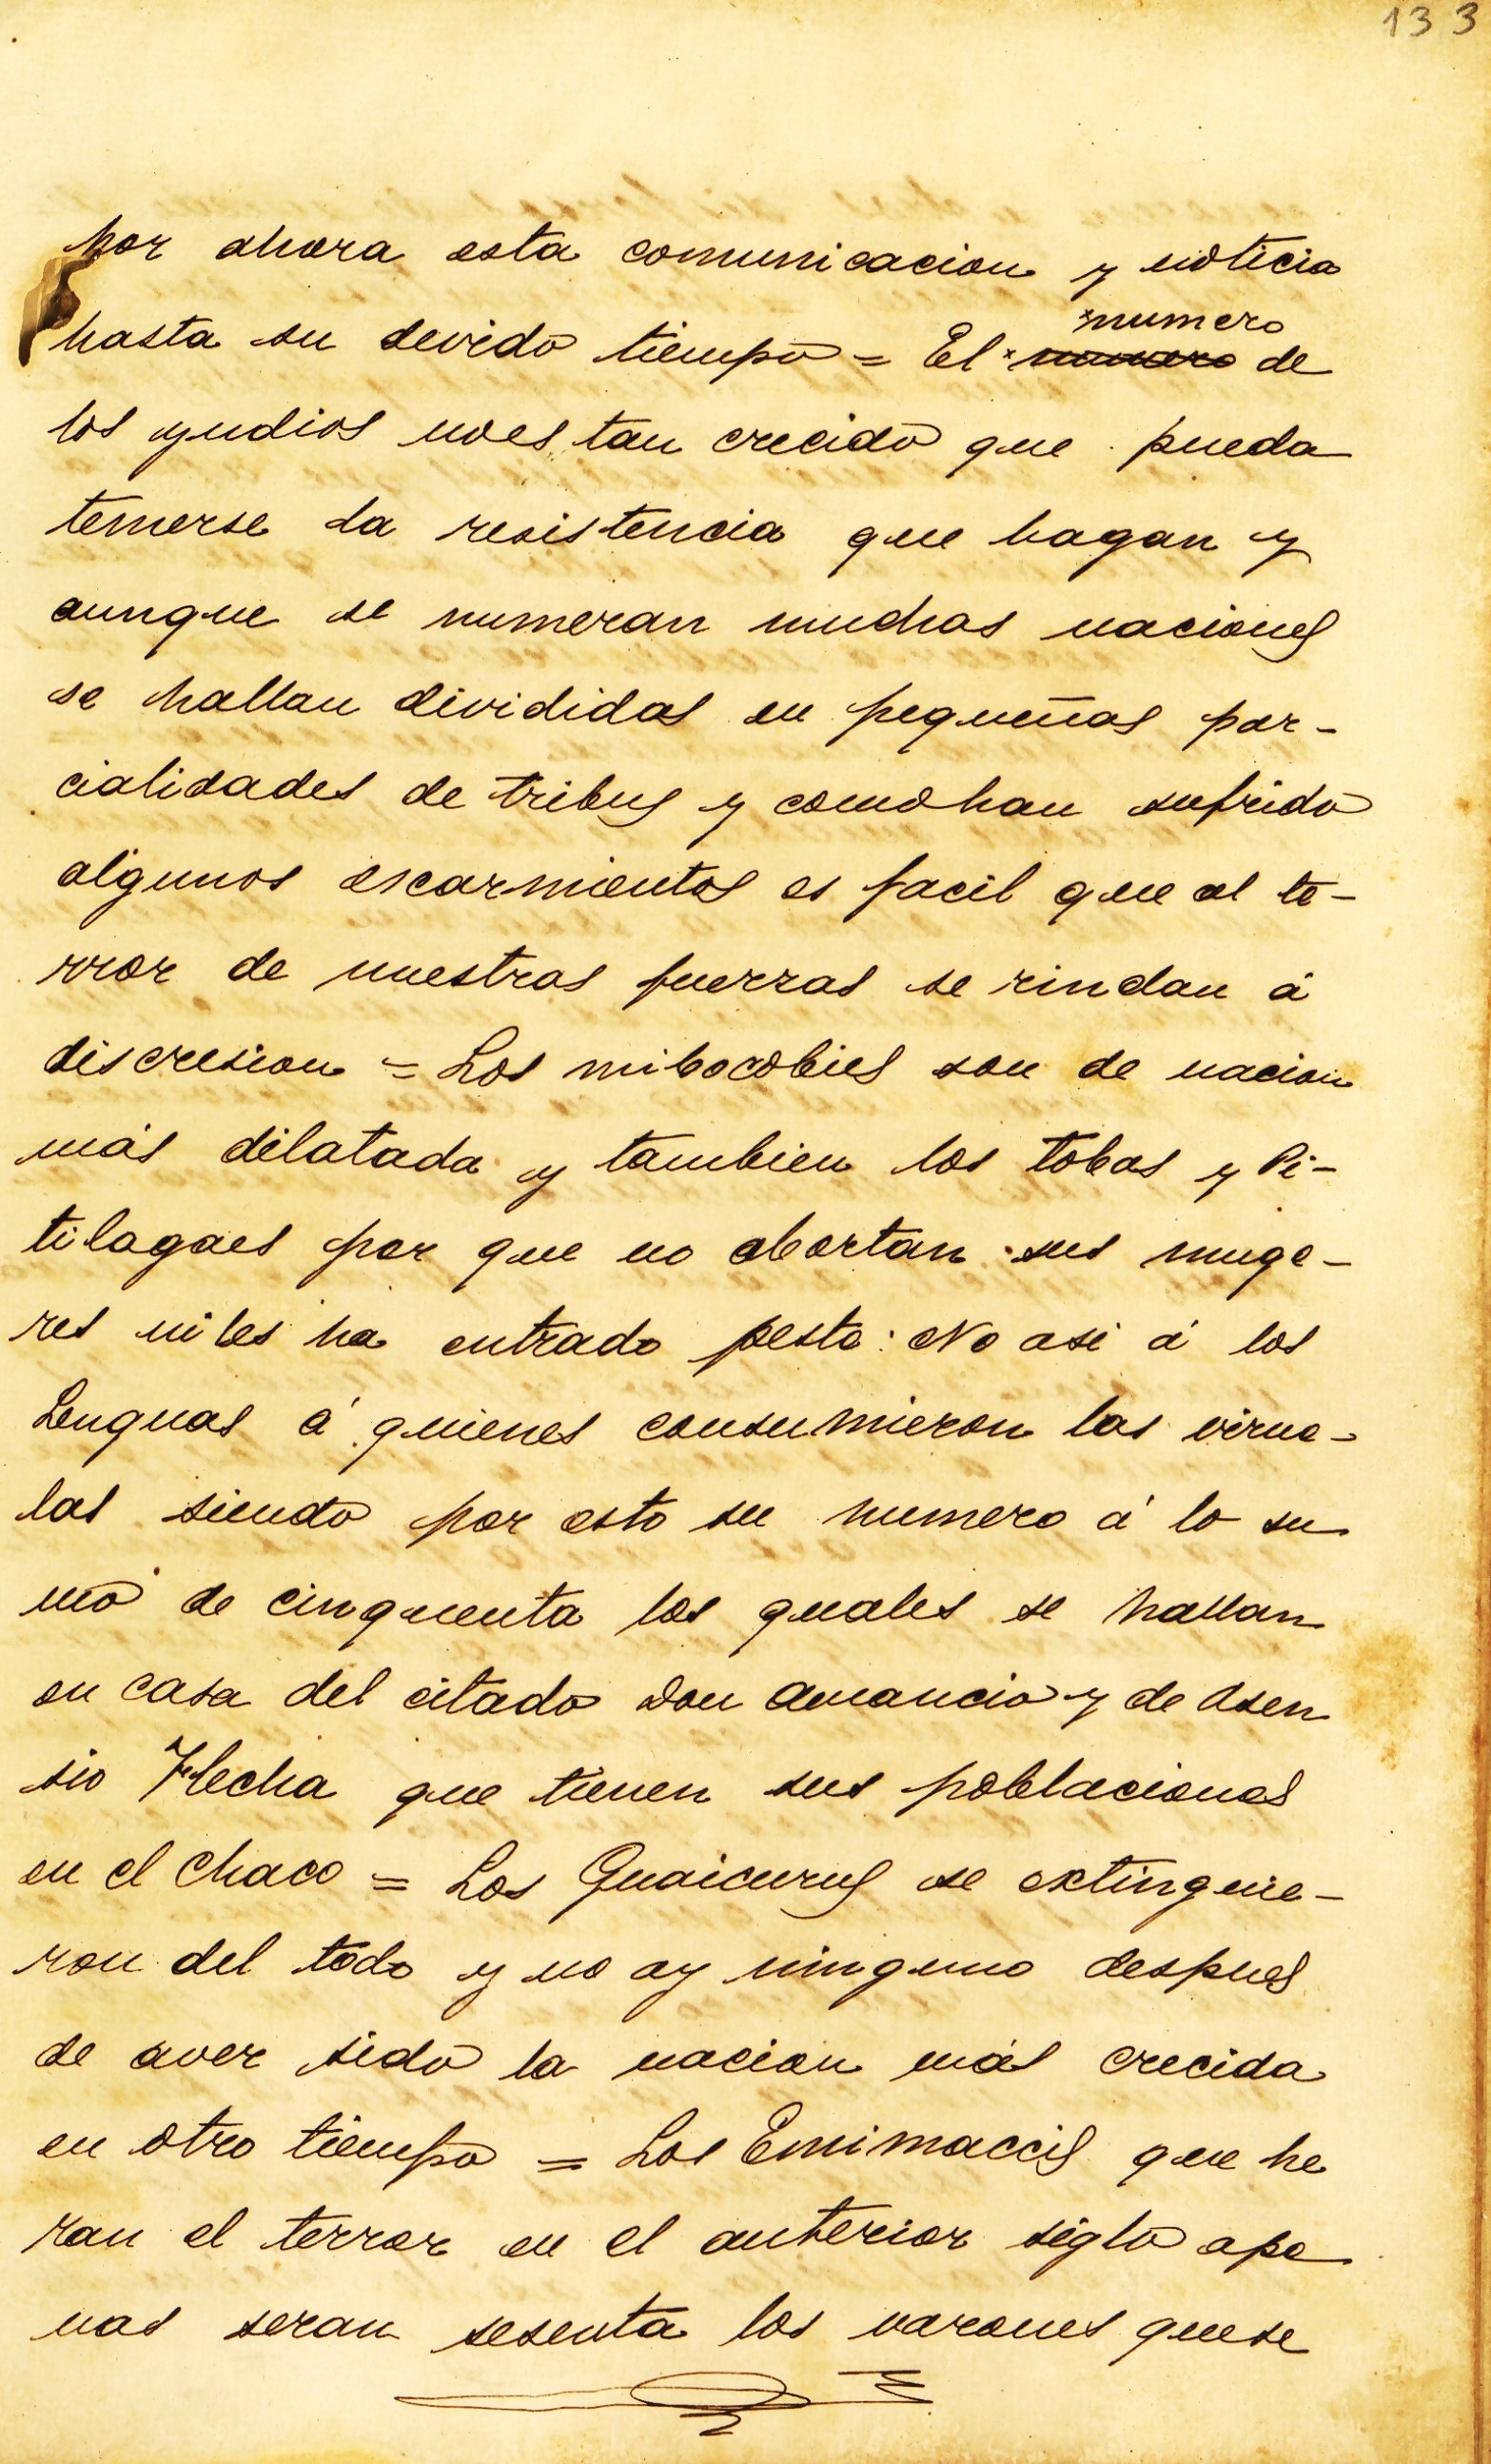 133
por ahora esta comunicacion y noticia
hasta su devido tiempo = El numero de
los yudios noes tan crecido que pueda
temerse la resistencia que hagan y
aunque se numeran muchas naciones
se hallan divididas en pequeñas par-
cialidades de tribus y comohan sufrido
algunos escarmientos es facil que al te-
rror de nuestras fuerzas se rindan á
discresion = Los mibocobies son de nacion
más dilatada y tambien los tobas y Pi-
tilagaes por que no abortan sus muge-
res niles ha entrado peste: No asi á los
Lenguas á quienes consumieron las virue-
las siendo por esto su numero á lo su
mo de cinquenta los quales se hallan
en casa del citado Don Amancio y de Asen
sio Flecha que tienen sus poblaciones
en el Chaco = Los Guaicurus se extinguie-
ron del todo y no ay ninguno despues
de aver sido la nacion más crecida
en otro tiempo = Los Enimaccis que he
ran el terror en el anterior siglo ape
nas seran sesenta los varones quese